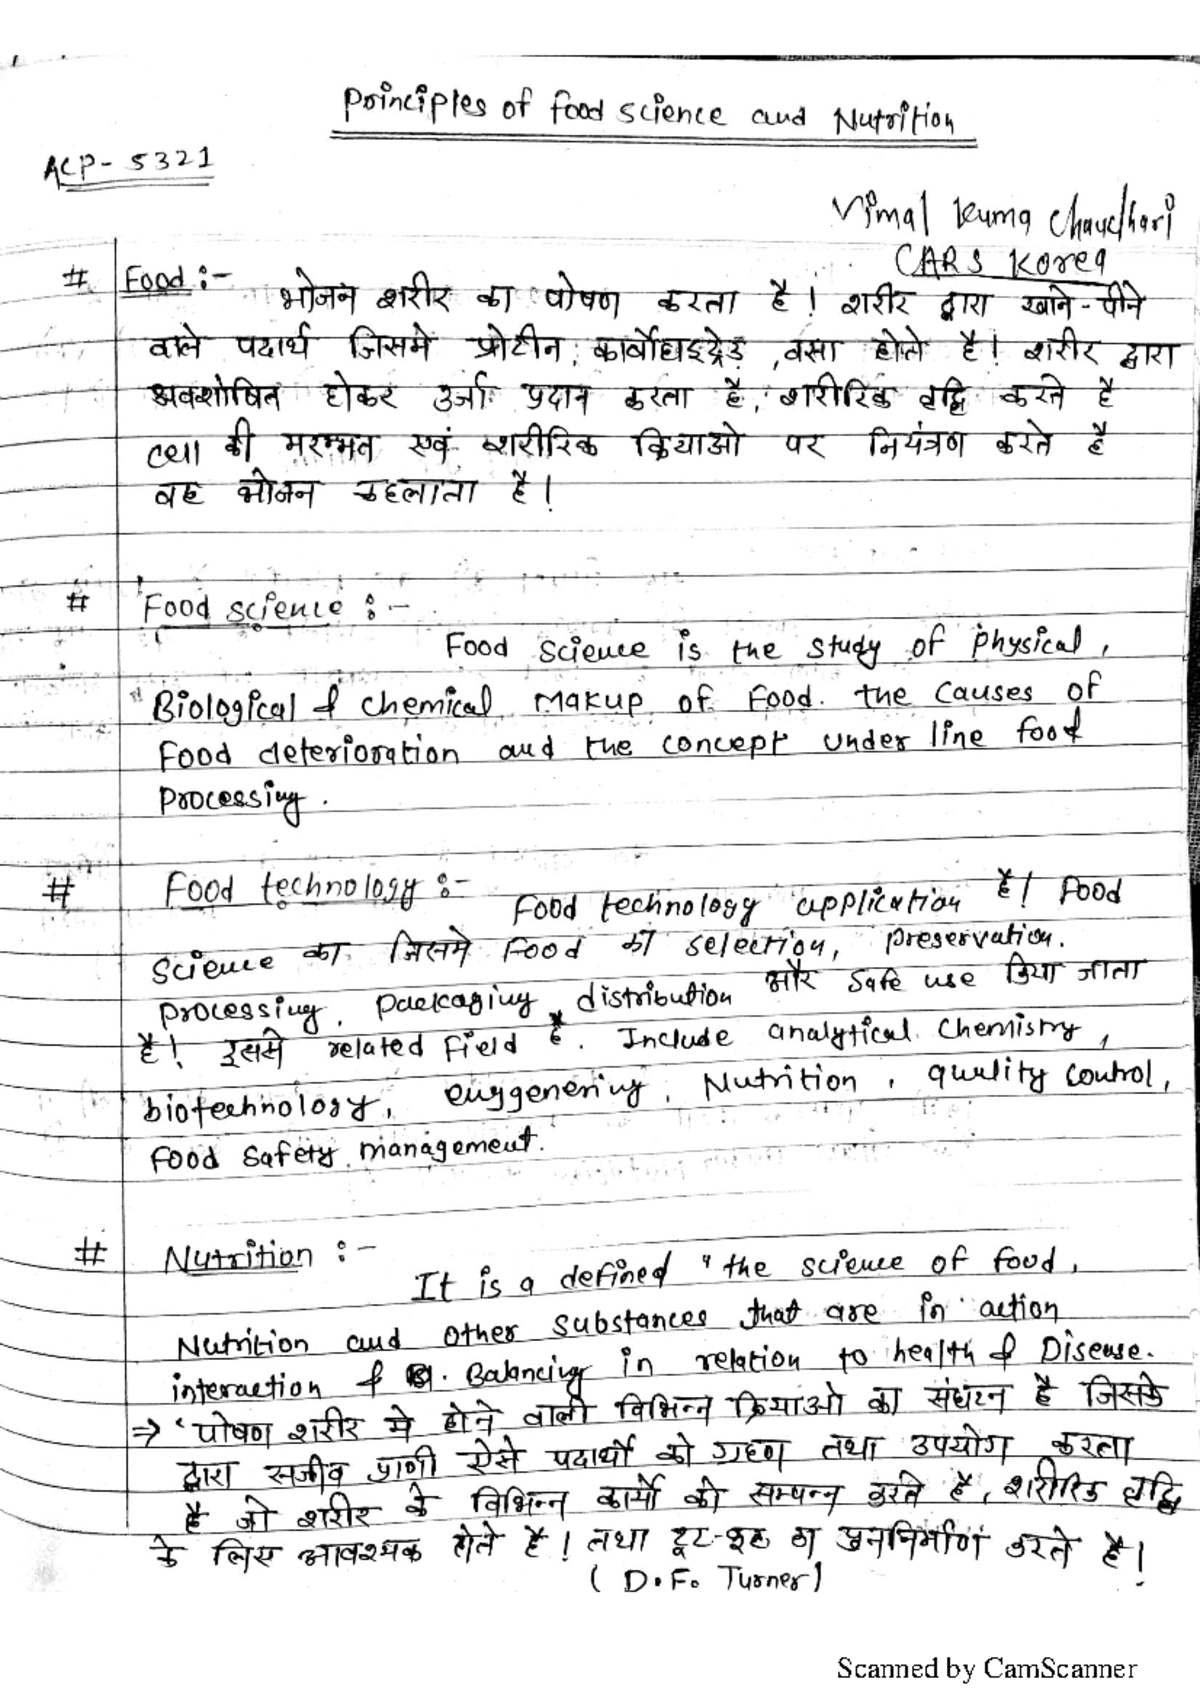 Principles of food science and Nutrition
ACP- 5321
Vimal Kuma Chaudhari
CARS Korea
# Food :-
भोजन शरीर का पोषण करता है। शरीर द्वारा खाने-पीने
वाले पदार्थ जिसमे प्रोटीन, कार्बोहाइड्रेड, वसा होते है। शरीर द्वारा
अवशोषित होकर उर्जा प्रदान करता है, शारीरिक वृद्धि करते है
cell की मरम्मत एवं शारीरिक क्रियाओ पर नियंत्रण करते है
वह भोजन कहलाता है।
# Food science :-
Food science is the study of physical,
Biological & chemical makup of food. the causes of
food deterioration and the concept under line food
processing.
# Food technology :-
Food technology application है। Food
science का जिसमे food की selection, preservation.
processing, packaging, distribution और safe use किया जाता
है। इसमे related field है. Include analytical chemistry,
biotechnology, enggenering, Nutrition, quality control,
food safety management.
# Nutrition :-
It is a defined "the science of food,
Nutrition and other substances that are in action
interaction & Balancing in relation to health & Disease.
⇒ 'पोषण शरीर मे होने वाली विभिन्न क्रियाओ का संघटन है जिसके
द्वारा सजीव प्राणी ऐसे पदार्थो को ग्रहण तथा उपयोग करता
है जो शरीर के विभिन्न कार्यो को सम्पन्न करते है, शारीरिक वृद्धि
के लिए आवश्यक होते है। तथा टूट-फूट का पुननिर्माण करते है।
(D.F. Turner)
Scanned by CamScanner